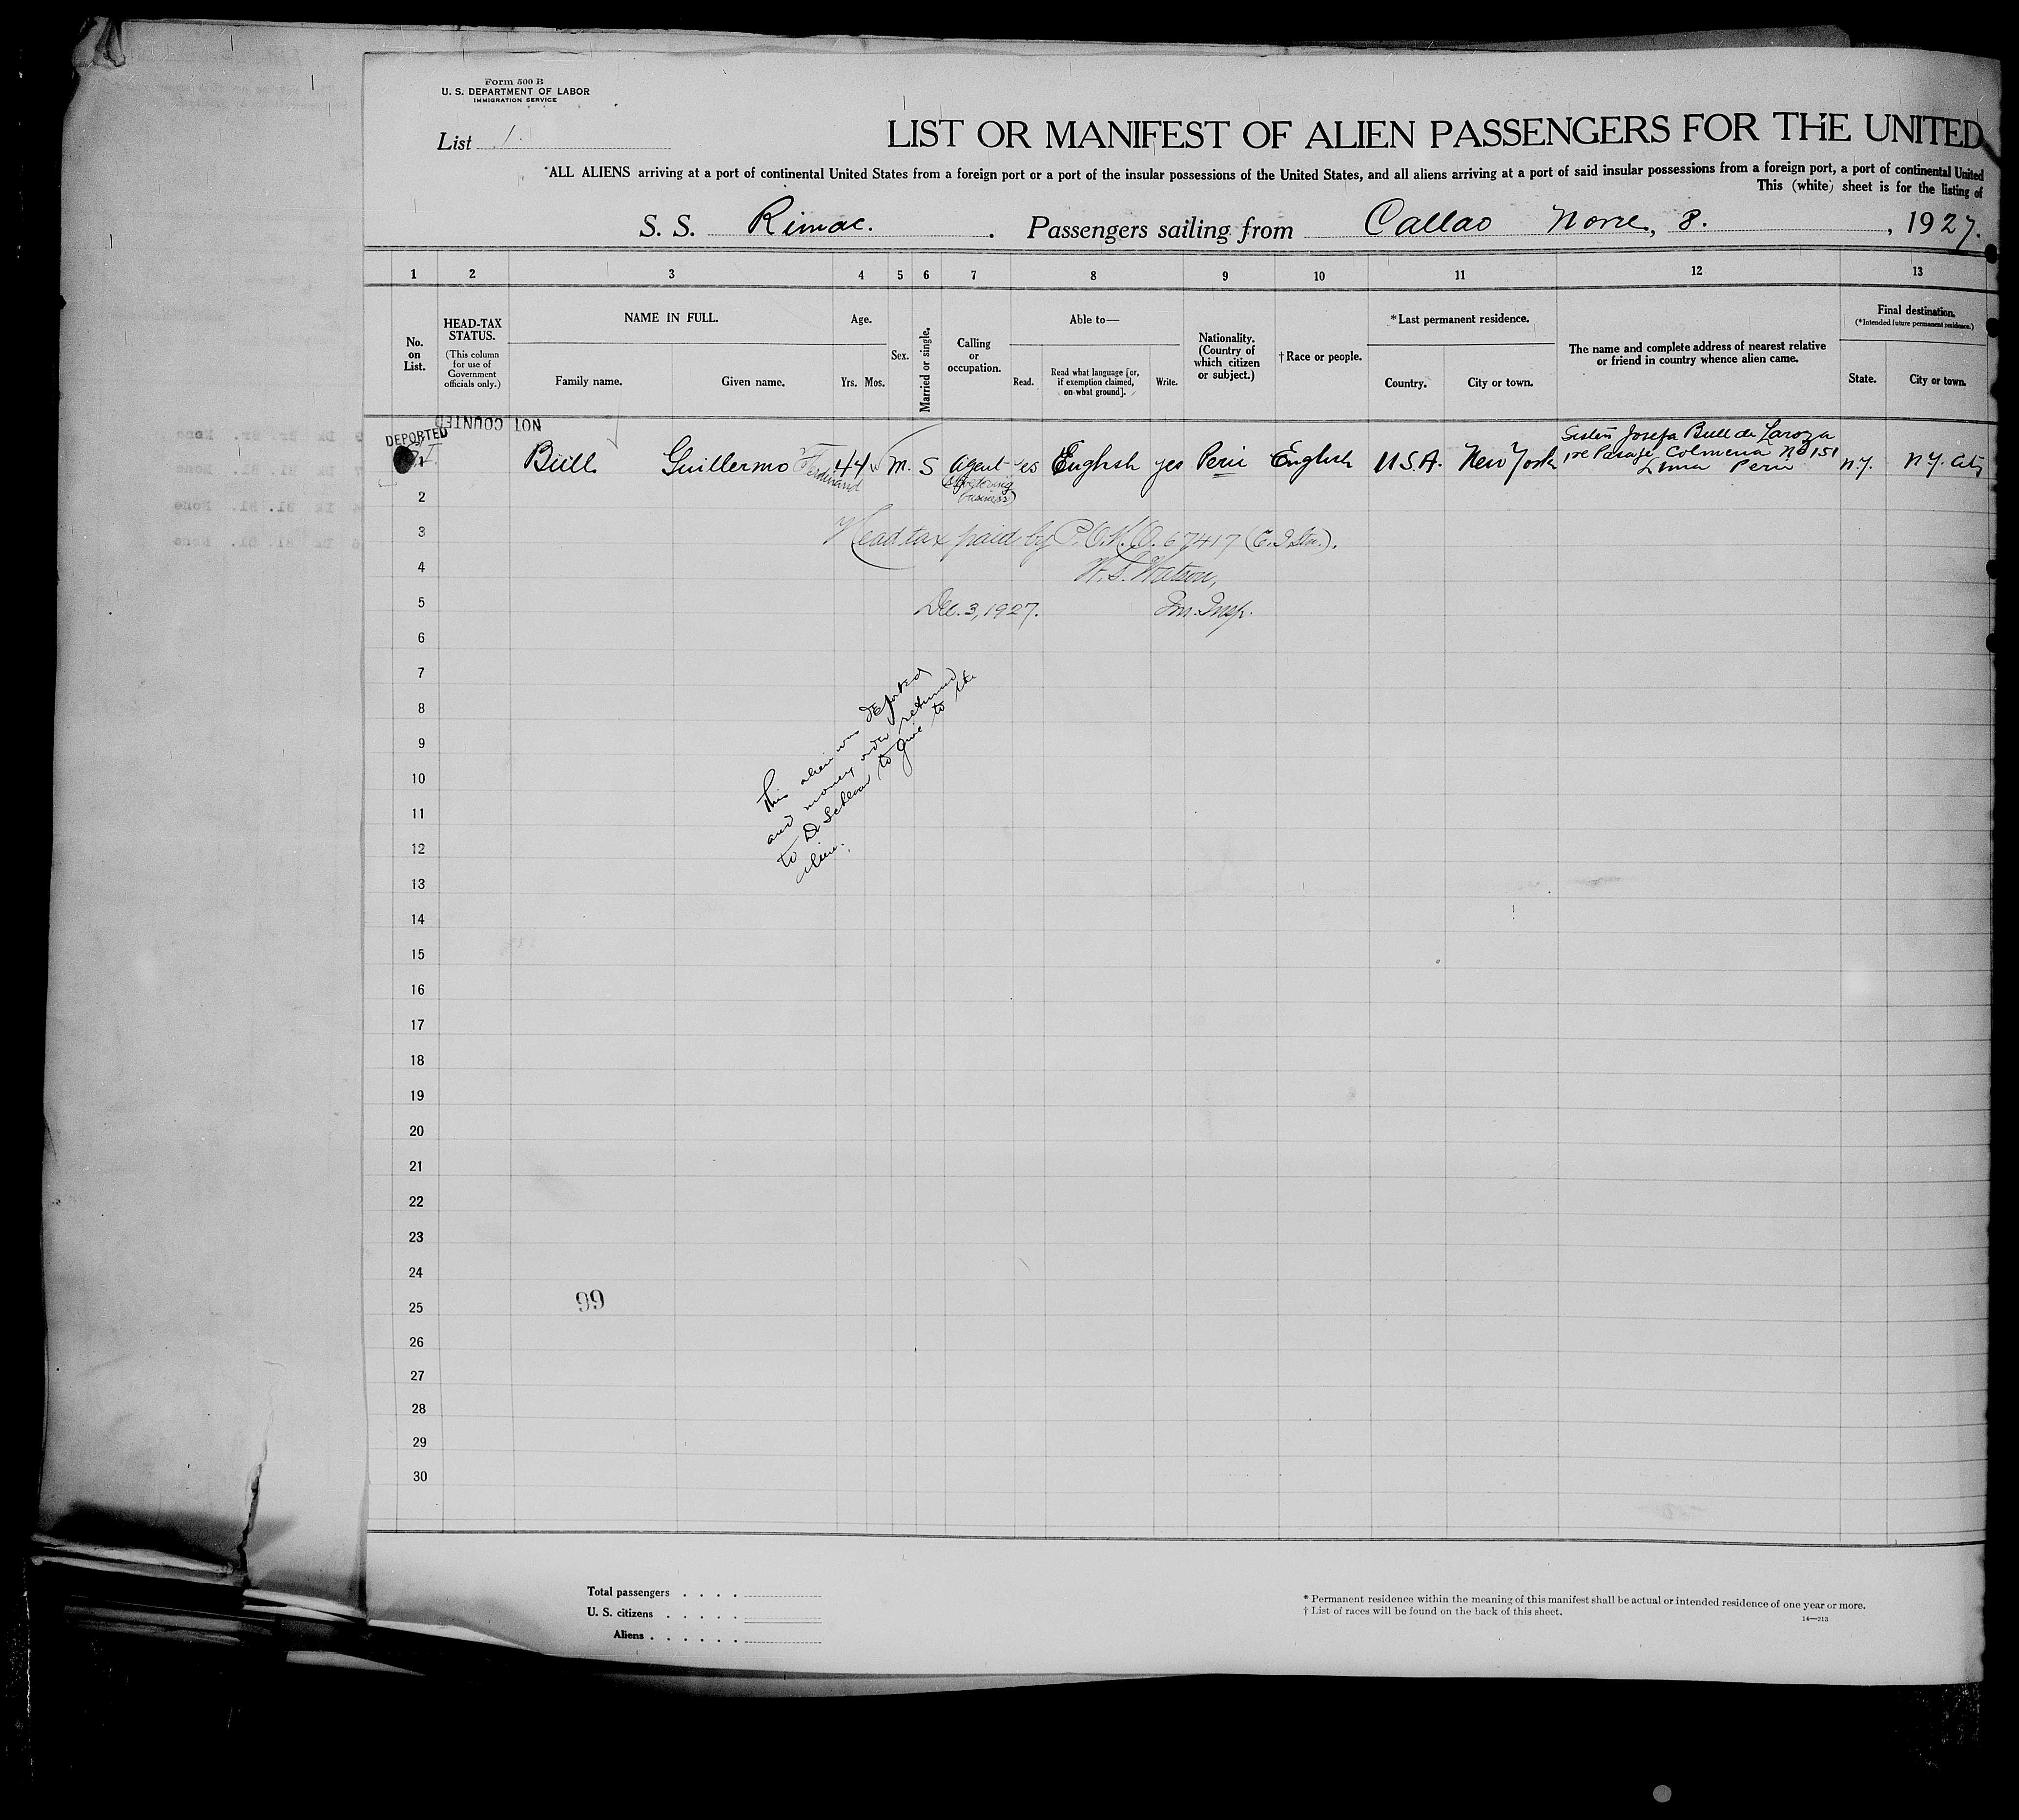 Form 500 B
U. S. DEPARTMENT OF LABOR
IMMIGRATION SERVICE
List 1.
LIST OR MANIFEST OF ALIEN PASSENGERS FOR THE UNITED
*ALL ALIENS arriving at a port of continental United States from a foreign port or a port of the insular possessions of the United States, and all aliens arriving at a port of said insular possessions from a foreign port, a port of continental United
This (white) sheet is for the listing of
S. S. Rimac. . Passengers sailing from Callao Nove, 8. , 1927.
1 2 3 4 5 6 7 8 9 10 11 12 13
No. on List.
HEAD-TAX STATUS.
(This column for use of Government officials only.)
NAME IN FULL.
Family name. Given name.
Age.
Yrs. Mos.
Sex.
Married or single.
Calling or occupation.
Able to—
Read. Read what language [or, if exemption claimed, on what ground]. Write.
Nationality. (Country of which citizen or subject.)
†Race or people.
*Last permanent residence.
Country. City or town.
The name and complete address of nearest relative or friend in country whence alien came.
Final destination.
(*Intended future permanent residence.)
State. City or town.
NOT COUNTED
DEPORTED
Büll Guillermo Ferdinand 44 m. S Agent yes English yes Perü English U.S.A. New York
business)
Sister Josefa Bull de Laroza
1re Pasaje Colmena No 151
Lima Peru
N.Y. N.Y. City
2
3
Head tax paid by P.O.M.O. 67417 (E. I. Stn.).
4
W. S. Watson,
5
Dec. 3, 1927. Im. Insp.
6
7
8
9
10
11
12
13
14
15
16
17
18
19
20
21
22
23
24
25
26
27
28
29
30
This alien was deported
and money order returned
to Dr to give to the
alien.
99
Total passengers . . . .
U. S. citizens . . . . .
Aliens . . . . . .
* Permanent residence within the meaning of this manifest shall be actual or intended residence of one year or more.
† List of races will be found on the back of this sheet.
14—213